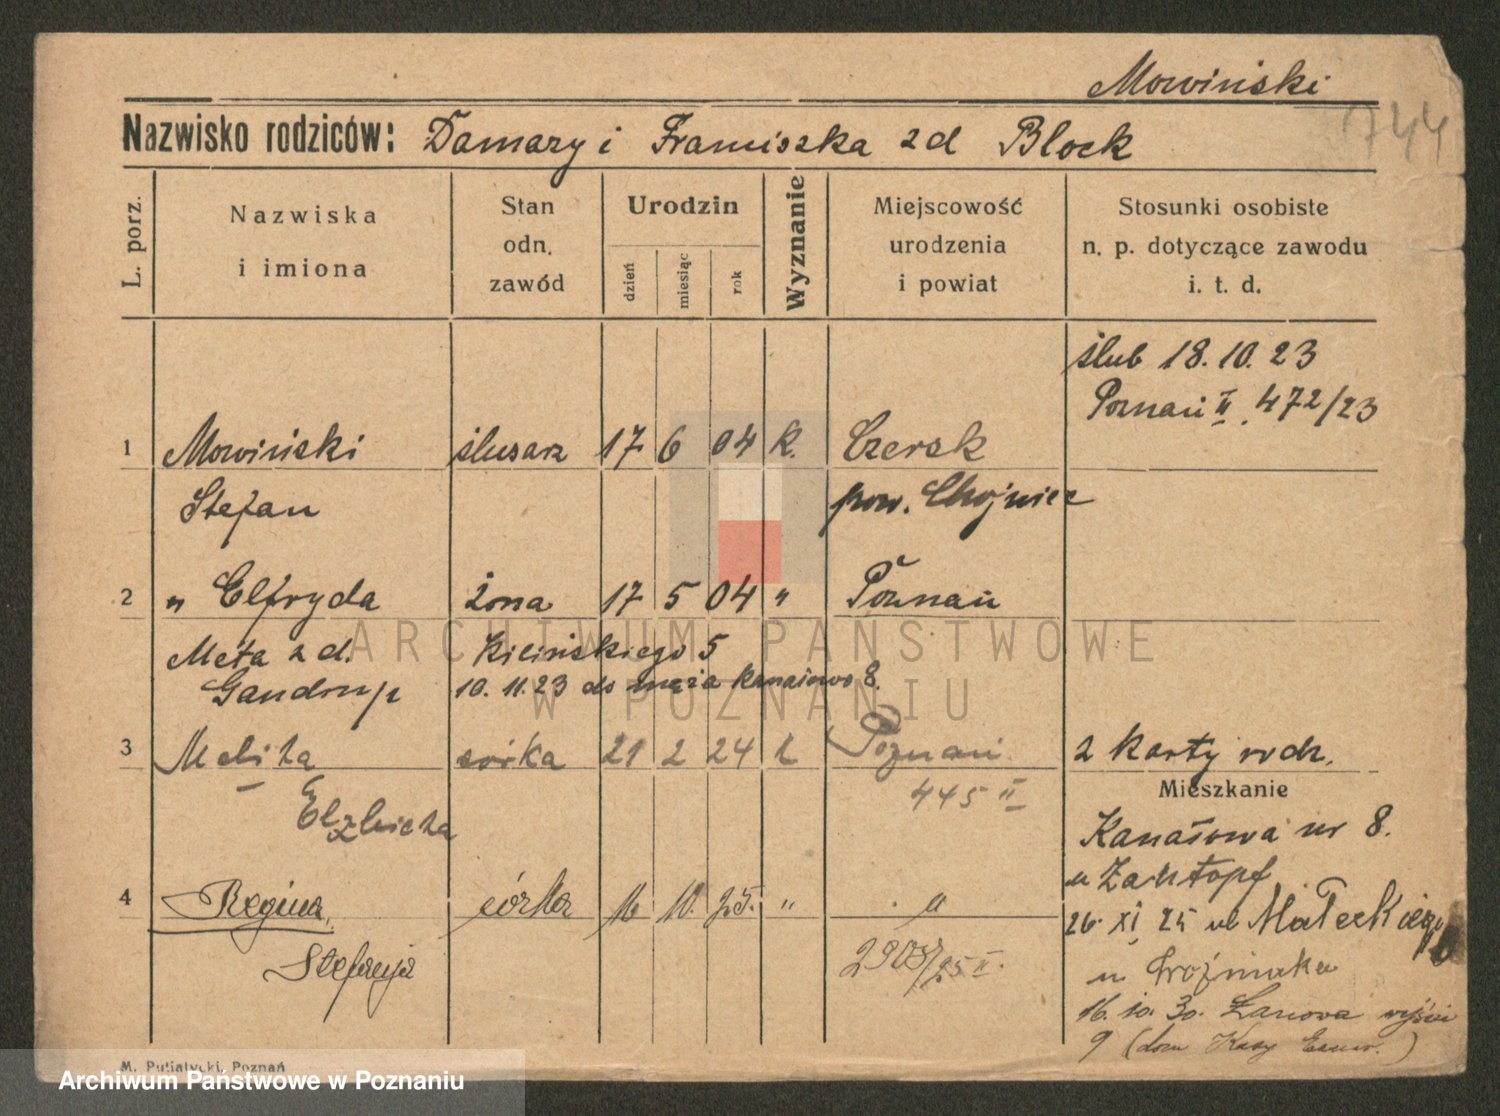 Mowiński
744
Nazwisko rodziców: Damazy i Franciszka zd Block
L. porz.
Nazwiska
i imiona
Stan
odn.
zawód
Urodzin
dzień
miesiąc
rok
Wyznanie
Miejscowość
urodzenia
i powiat
Stosunki osobiste
n. p. dotyczące zawodu
i. t. d.
ślub 18.10.23
Poznań II. 472/23
1 Mowiński ślusarz 17 6 04 K. Czersk
Stefan pow. Chojnice
2 " Elfryda żona 17 5 04 " Poznań
Meta z d. Kilińskiego 5
10.11.23 do męża Kanałowo 8.
3 Melita córka 21 2 24 k Poznań 2 karty rodz.
Elzbieta 445 II
Mieszkanie
Kanałowa nr 8.
u Zantopf
4 Regina córka 16 10. 25. " "
26. XI. 25 ul Małeckiego
Stefanja /25 II.
u Woźniaka
16. 10. 30. Łanowa
9 (dom Kasy
M. Putiatycki, Poznań
ARCHIWUM PAŃSTWOWE
W POZNANIU
Archiwum Państwowe w Poznaniu